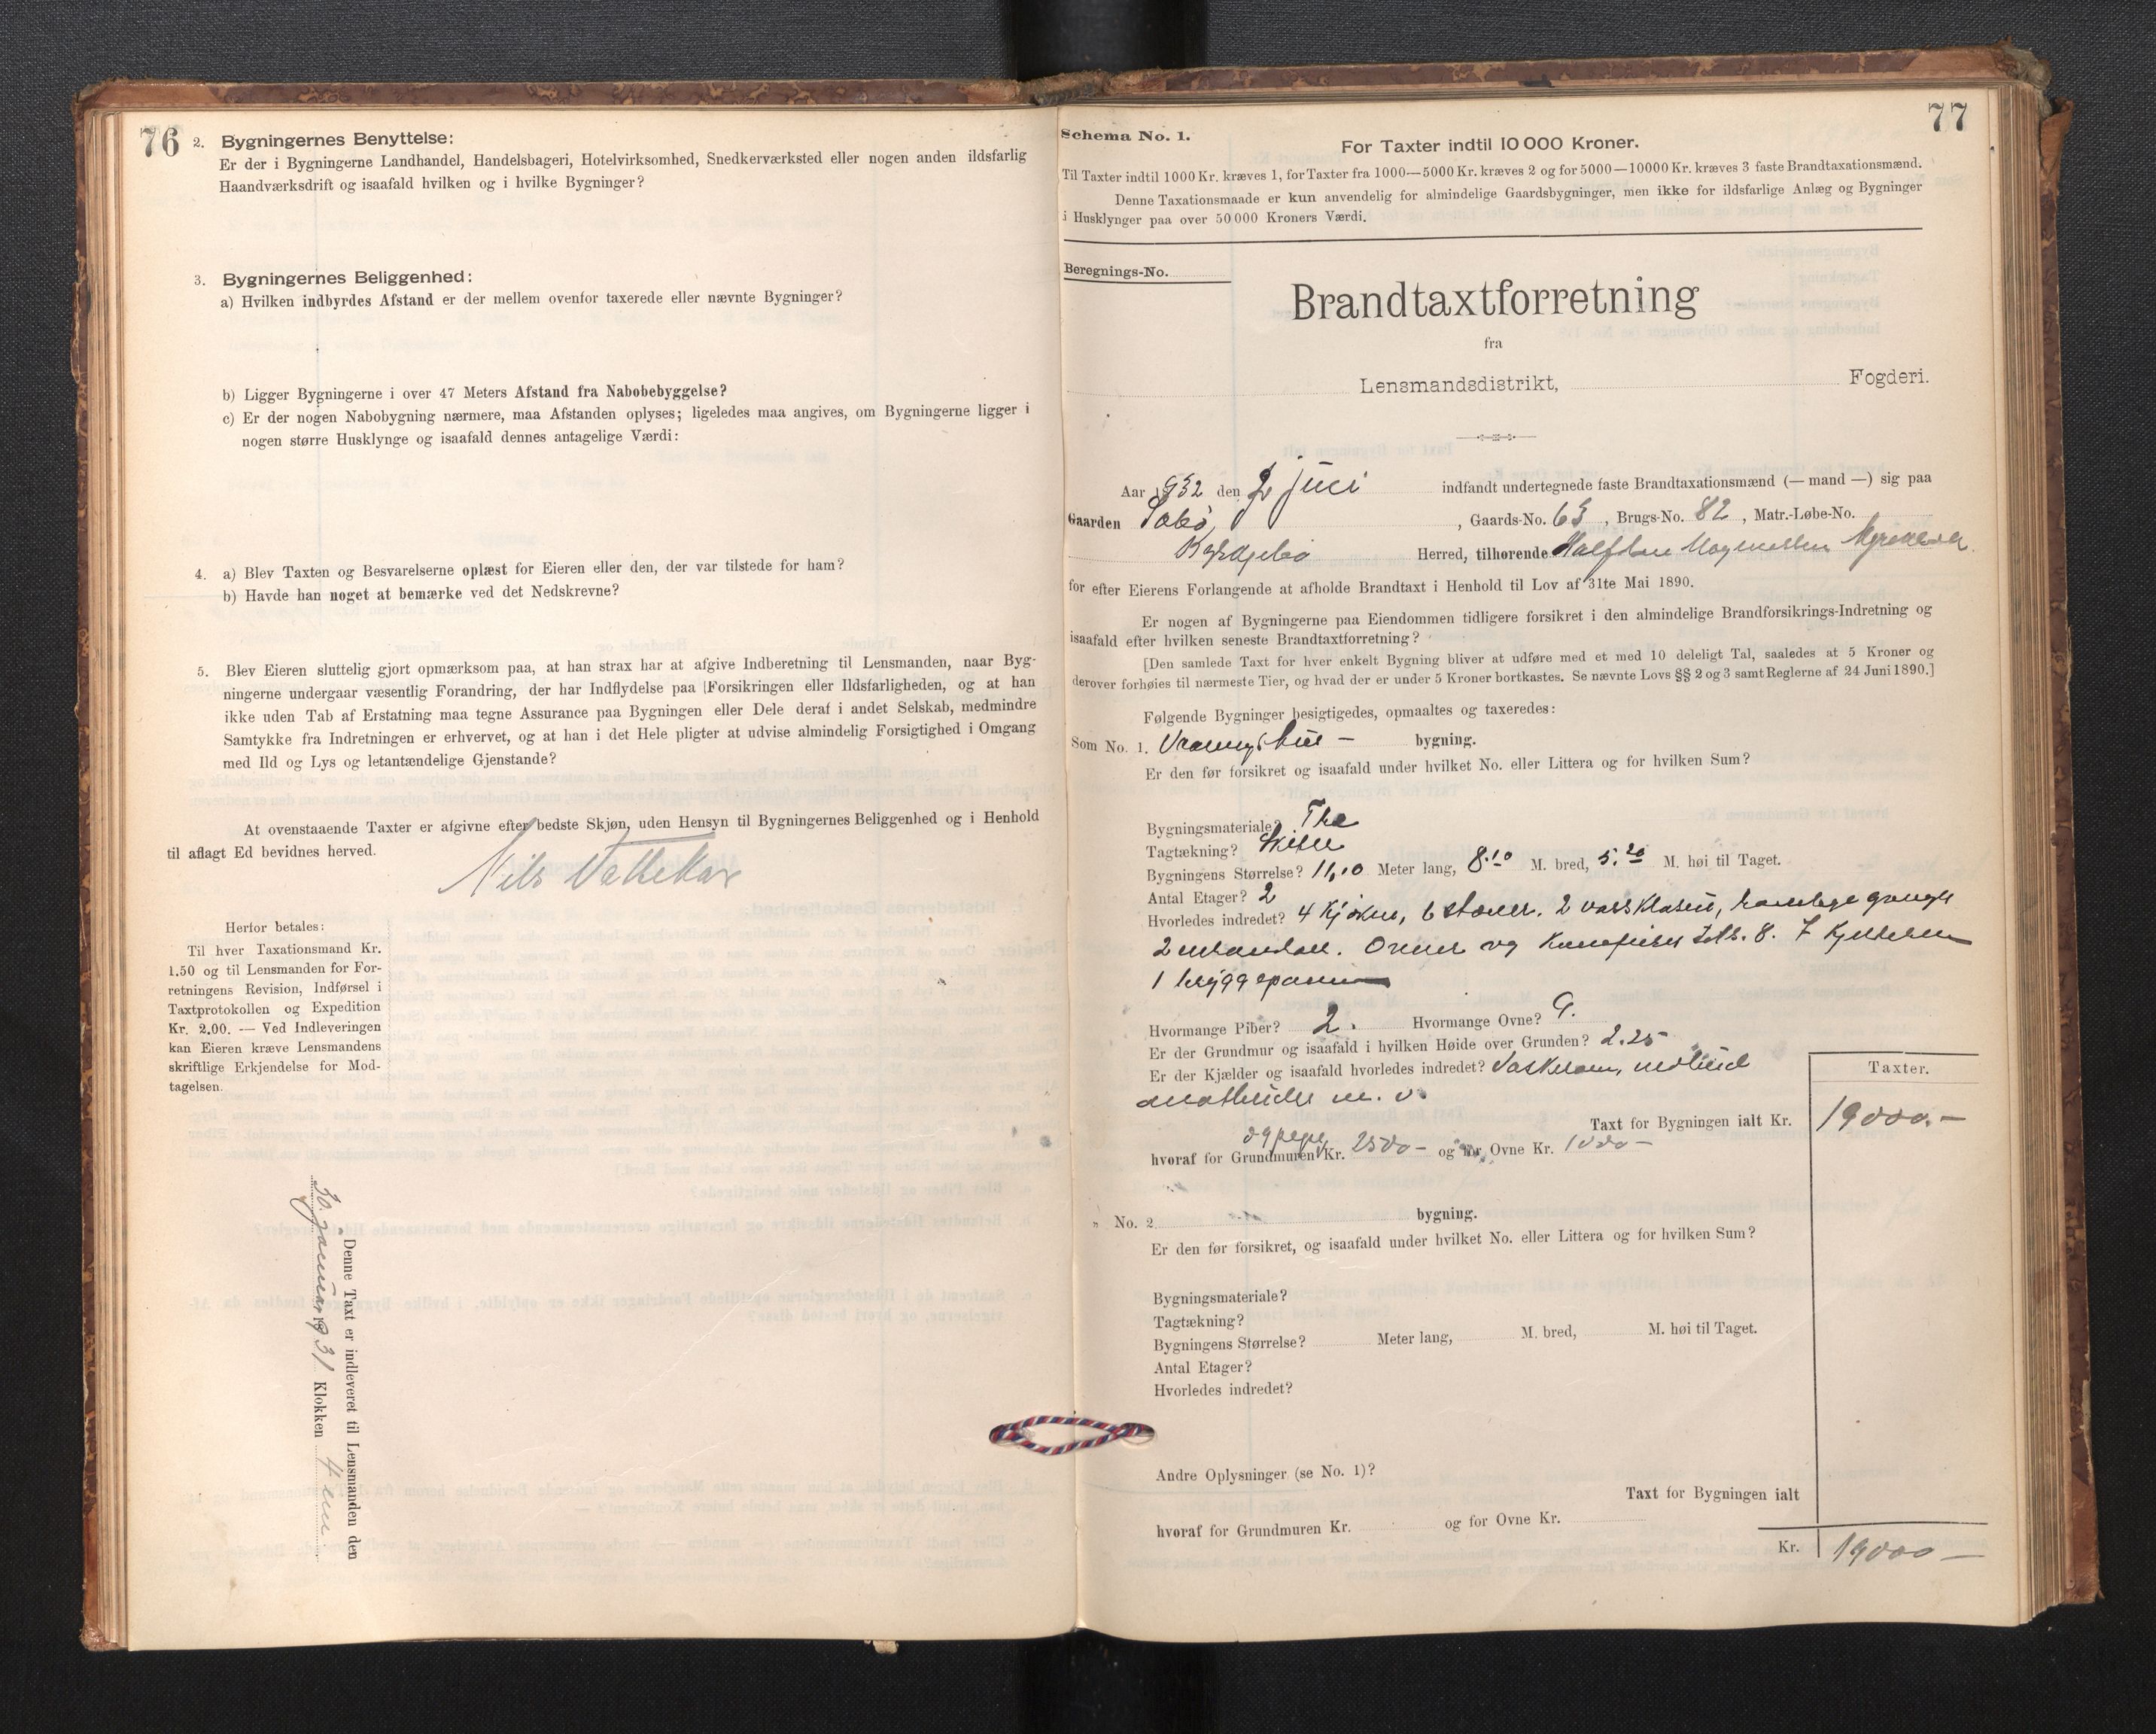 76
2. Bygningernes Benyttelse:
Er der i Bygningerne Landhandel, Handelsbageri, Hotelvirksomhed, Snedkerværksted eller nogen anden ildsfarlig
Haandværksdrift og isaafald hvilken og i hvilke Bygninger?
3. Bygningernes Beliggenhed:
a) Hvilken indbyrdes Afstand er der mellem ovenfor taxerede eller nævnte Bygninger?
b) Ligger Bygningerne i over 47 Meters Afstand fra Nabobebyggelse?
c) Er der nogen Nabobygning nærmere, maa Afstanden oplyses; ligeledes maa angives, om Bygningerne ligger i
nogen større Husklynge og isaafald dennes antagelige Værdi:
4. a) Blev Taxten og Besvarelserne oplæst for Eieren eller den, der var tilstede for ham?
b) Havde han noget at bemærke ved det Nedskrevne?
5. Blev Eieren sluttelig gjort opmærksom paa, at han strax har at afgive Indberetning til Lensmanden, naar Byg-
ningerne undergaar væsentlig Forandring, der har Indflydelse paa Forsikringen eller Ildsfarligheden, og at han
ikke uden Tab af Erstatning maa tegne Assurance paa Bygningen eller Dele deraf i andet Selskab, medmindre
Samtykke fra Indretningen er erhvervet, og at han i det Hele pligter at udvise almindelig Forsigtighed i Omgang
med Ild og Lys og letantændelige Gjenstande?
At ovenstaaende Taxter er afgivne efter bedste Skjøn, uden Hensyn til Bygningernes Beliggenhed og i Henhold
til aflagt Ed bevidnes herved.
Nils Vattekar
Herfor betales:
Til hver Taxationsmand Kr.
1.50 og til Lensmanden for For-
retningens Revision, Indførsel i
Taxtprotokollen og Expedition
Kr. 2.00. — Ved Indleveringen
kan Eieren kræve Lensmandens
skriftlige Erkjendelse for Mod-
tagelsen.
Denne Taxt er indleveret til Lensmanden den
30. januar 1931 Klokken 4 em
77
Schema No. 1.
For Taxter indtil 10 000 Kroner.
Til Taxter indtil 1000 Kr. kræves 1, for Taxter fra 1000—5000 Kr. kræves 2 og for 5000—10000 Kr. kræves 3 faste Brandtaxationsmænd.
Denne Taxationsmaade er kun anvendelig for almindelige Gaardsbygninger, men ikke for ildsfarlige Anlæg og Bygninger
i Husklynger paa over 50 000 Kroners Værdi.
Beregnings-No.
Brandtaxtforretning
fra
Lensmandsdistrikt, Fogderi.
Aar 1932 den 2 juni indfandt undertegnede faste Brandtaxationsmænd (— mand —) sig paa
Gaarden , Gaards-No. 63, Brugs-No. 82, Matr.-Løbe-No.
Herred, tilhørende Halfdan
for efter Eierens Forlangende at afholde Brandtaxt i Henhold til Lov af 31te Mai 1890.
Er nogen af Bygningerne paa Eiendommen tidligere forsikret i den almindelige Brandforsikrings-Indretning og
isaafald efter hvilken seneste Brandtaxtforretning?
[Den samlede Taxt for hver enkelt Bygning bliver at udføre med et med 10 deleligt Tal, saaledes at 5 Kroner og
derover forhøies til nærmeste Tier, og hvad der er under 5 Kroner bortkastes. Se nævnte Lovs §§ 2 og 3 samt Reglerne af 24 Juni 1890.]
Følgende Bygninger besigtigedes, opmaaltes og taxeredes:
Som No. 1. Vraaningshus — bygning.
Er den før forsikret og isaafald under hvilket No. eller Littera og for hvilken Sum?
Bygningsmateriale? Træ
Tagtækning? Skifer
Bygningens Størrelse? 11,10 Meter lang, 8.10 M. bred, 5.20 M. høi til Taget.
Antal Etager? 2
Hvorledes indredet? 4 kjøken, 6 stover. 2 ganger
Ovner og 8. 7
1 bryggepanne
Hvormange Piber? 2. Hvormange Ovne? 9.
Er der Grundmur og isaafald i hvilken Høide over Grunden? 2.25
Er der Kjælder og isaafald hvorledes indredet? Vaskerom, vedbod
matboder m. v.
Taxter.
Taxt for Bygningen ialt Kr. 19000.—
og pipe
hvoraf for Grundmuren Kr. 2500— og for Ovne Kr. 1000—
" No. 2 bygning.
Er den før forsikret, og isaafald under hvilket No. eller Littera og for hvilken Sum?
Bygningsmateriale?
Tagtækning?
Bygningens Størrelse? Meter lang, M. bred, M. høi til Taget.
Antal Etager?
Hvorledes indredet?
Andre Oplysninger (se No. 1)?
Taxt for Bygningen ialt
hvoraf for Grundmuren Kr. og for Ovne Kr.
Kr. 19000—